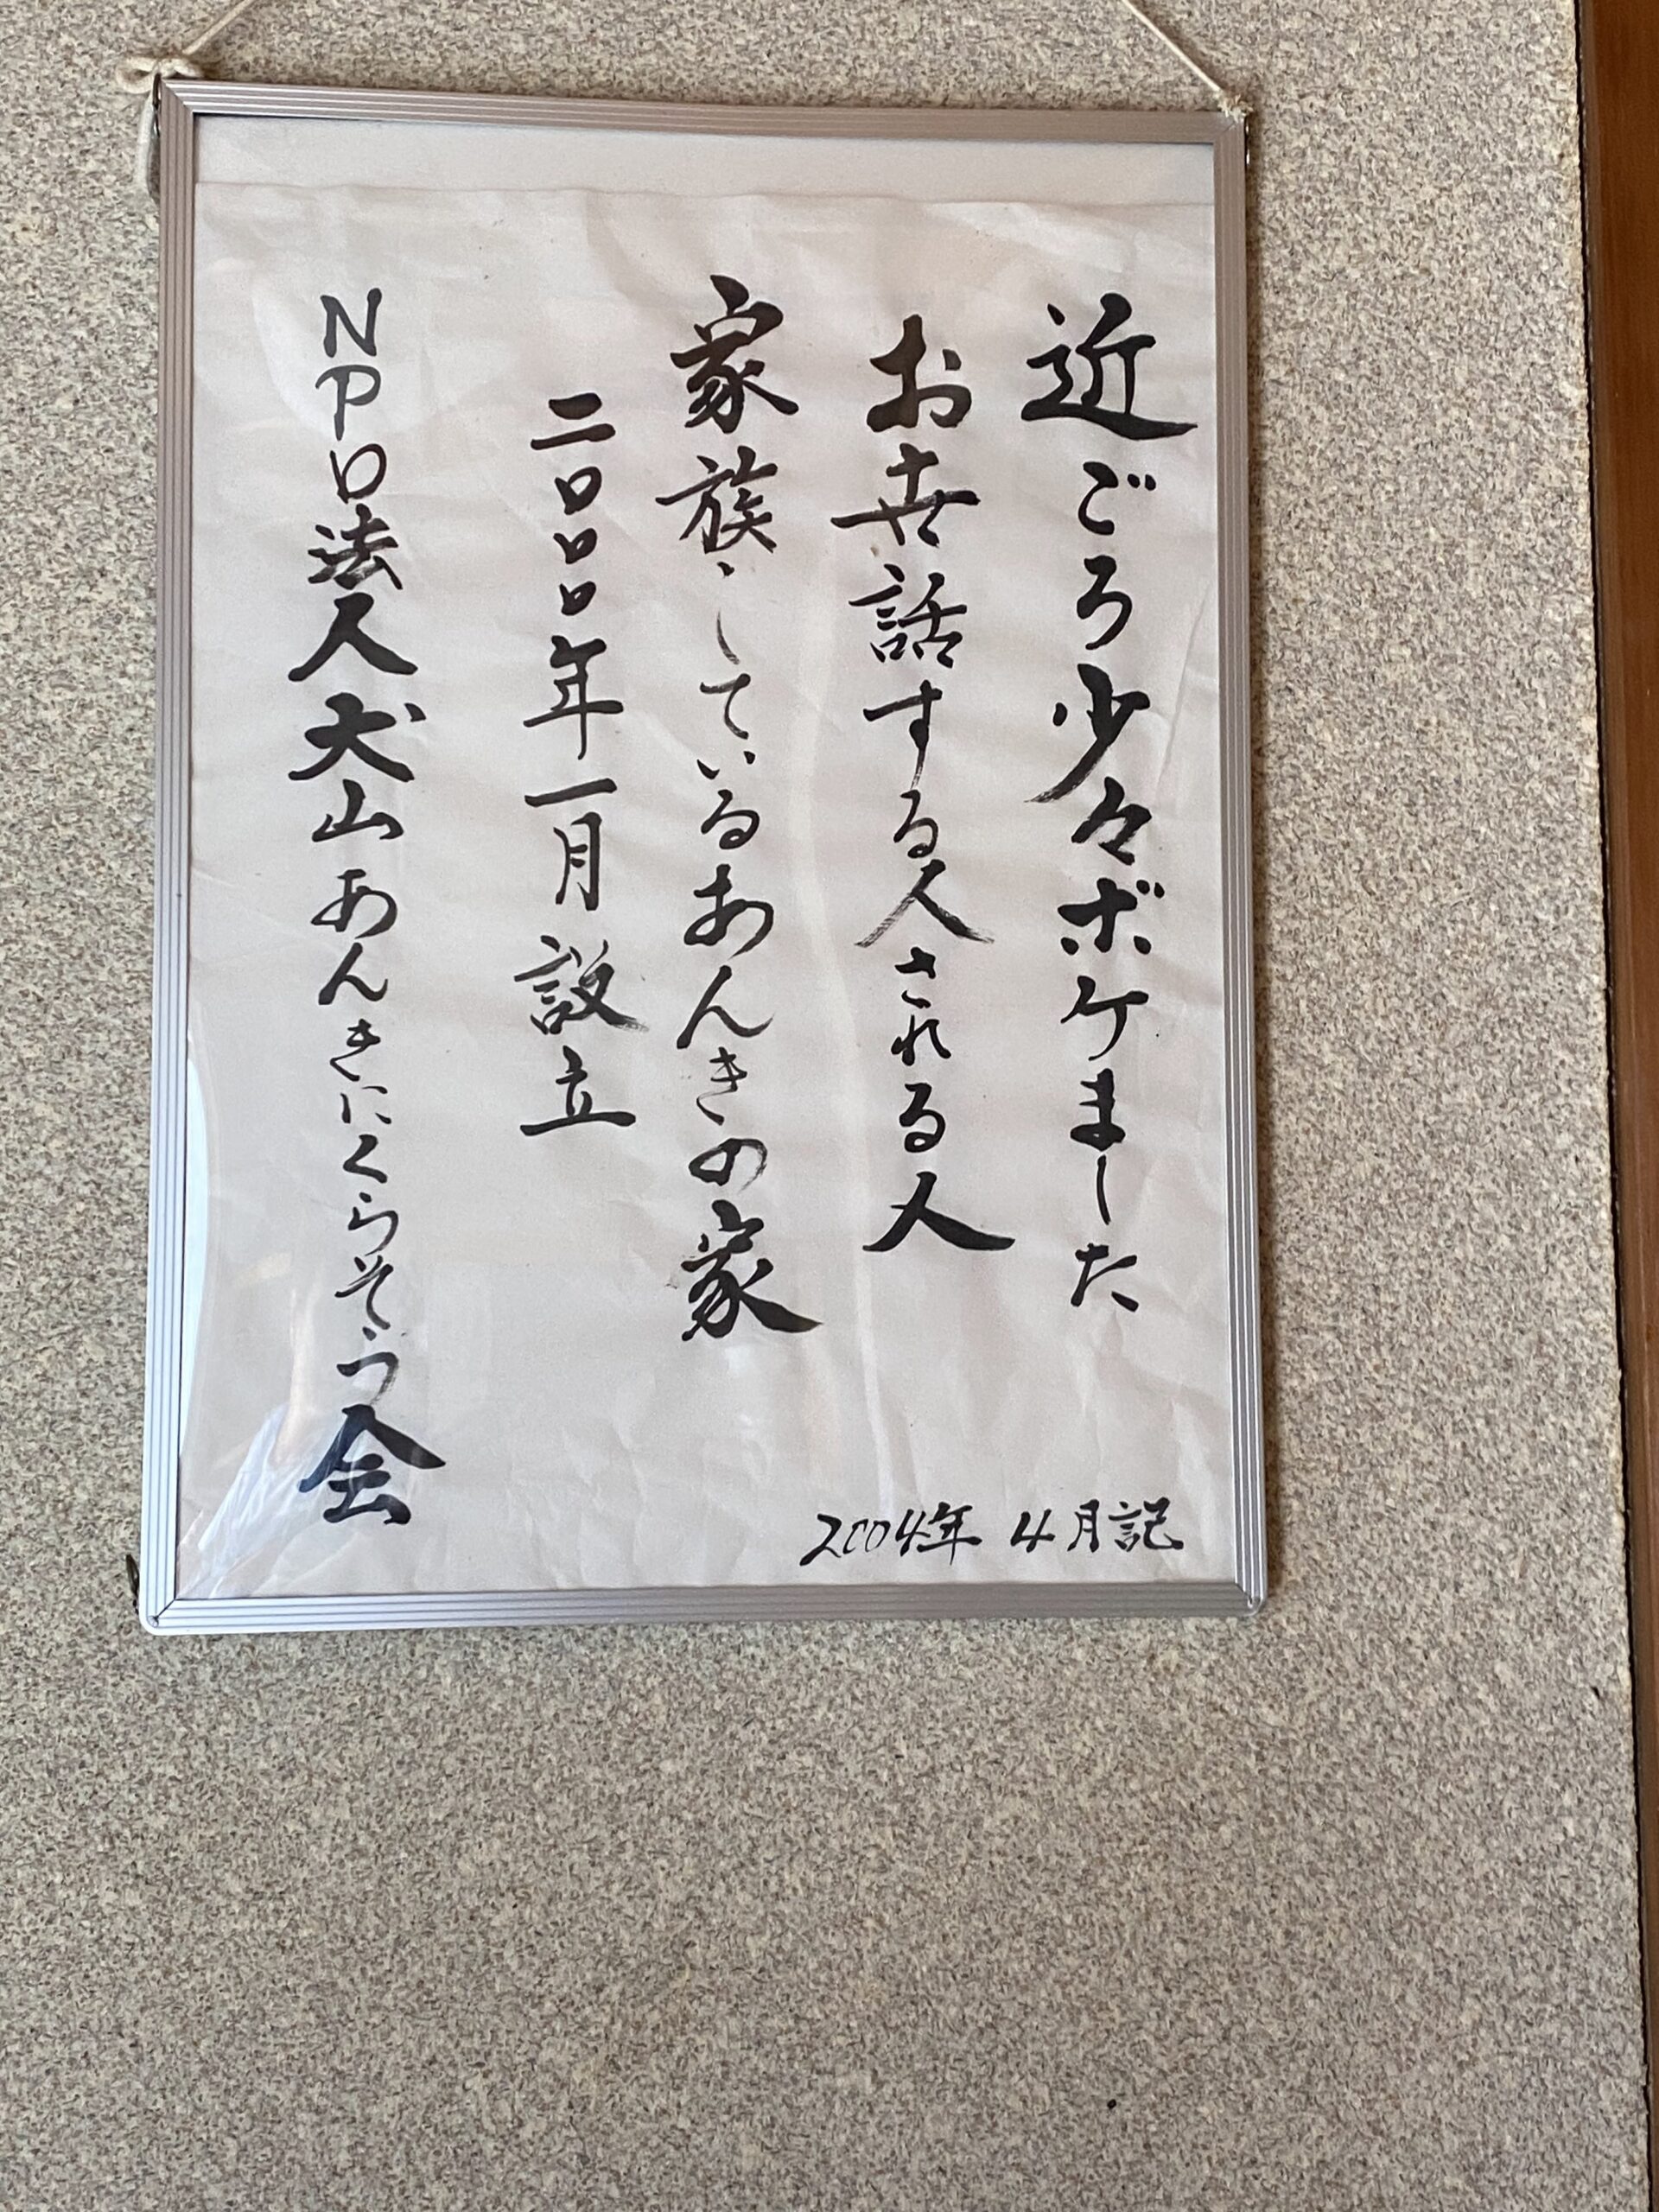 近ごろ少々ボケました
お世話する人される人
家族、しているあんきの家
二〇〇〇年一月設立
NPO法人犬山あんきにくらそう会
2004年 4月記